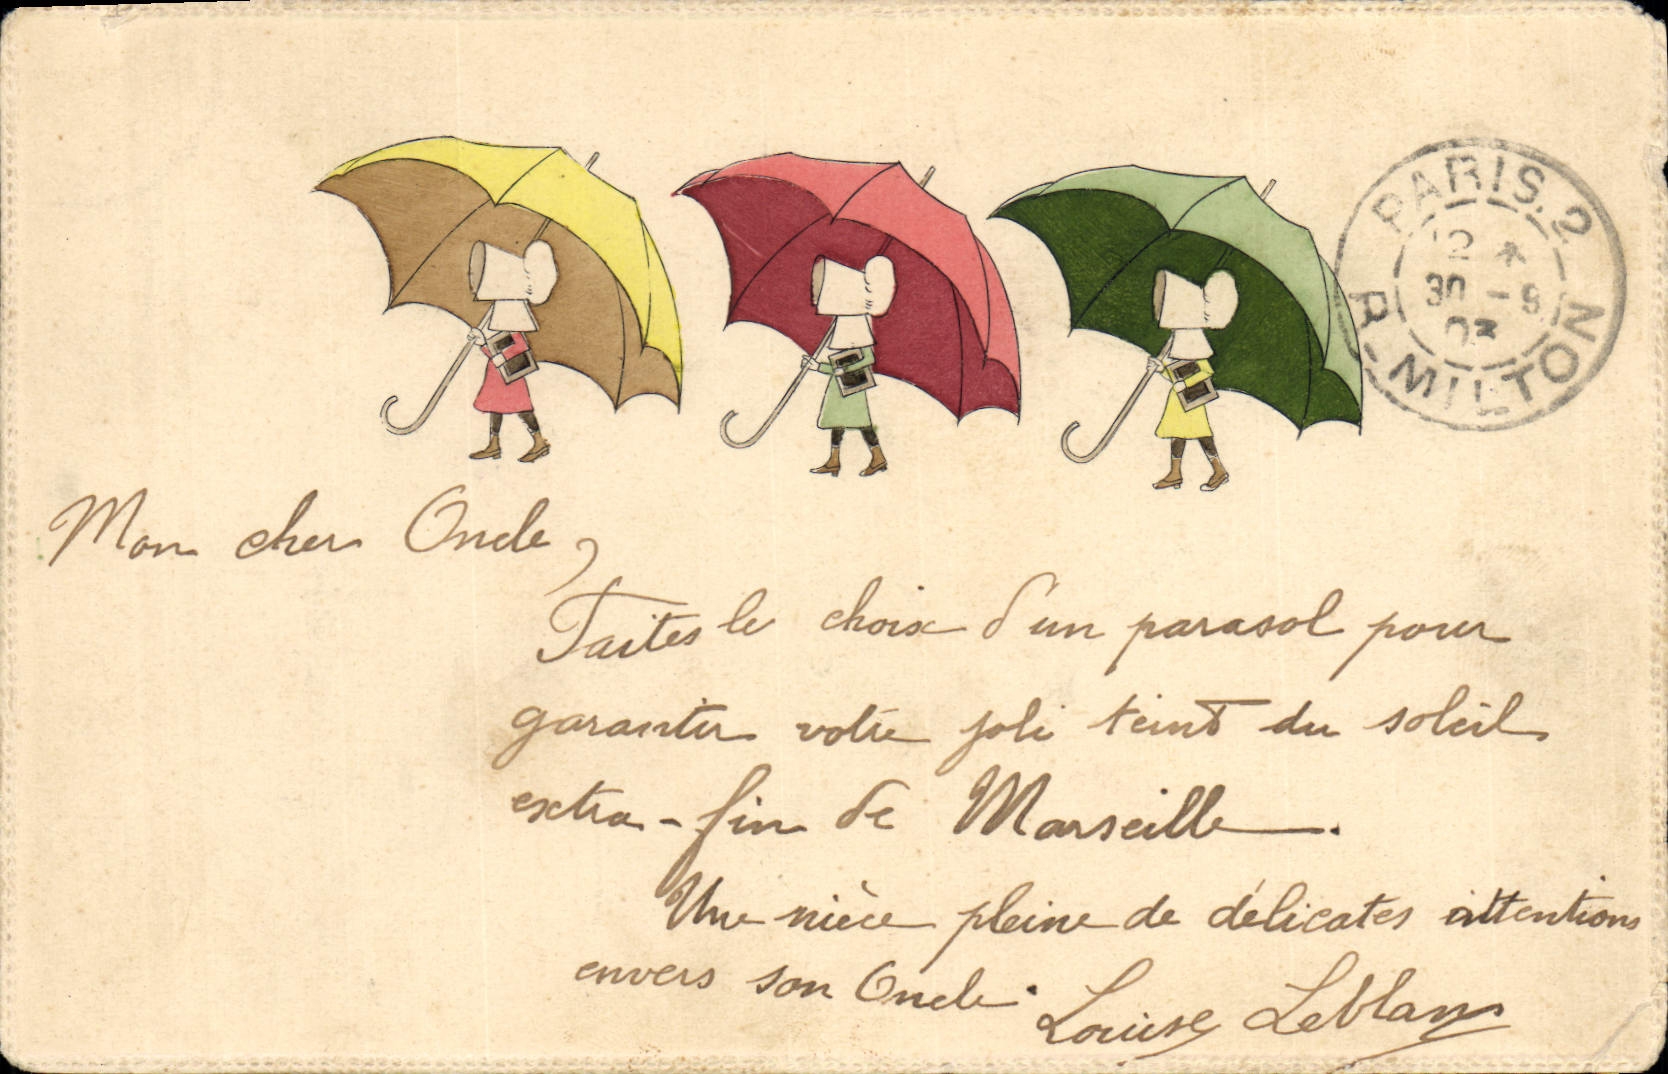 PARIS. 2
12 *
30 - 9
03
R. MILTON
Mon cher Oncle,
Faites le choix d'un parasol pour
garantir votre joli teint du soleil
extra-fin de Marseille.
Une nièce pleine de délicates attentions
envers son Oncle.
Louise Leblanc